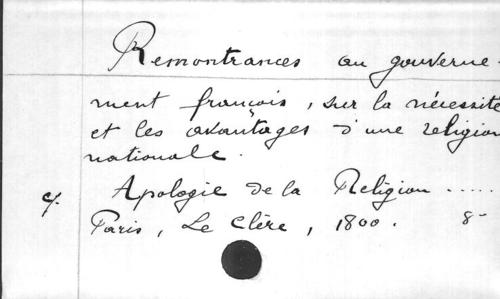 Remontrances au gouverne-
ment françois, sur la nécessité
et les avantages d'une religion
nationale.
cf. Apologie de la Religion .....
Paris, Le Clère, 1800. 8-